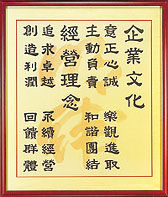 企業文化
意正心誠 樂觀進取
主動負責 和諧團結
經營理念
追求卓越 永續經營
創造利潤 回饋群體